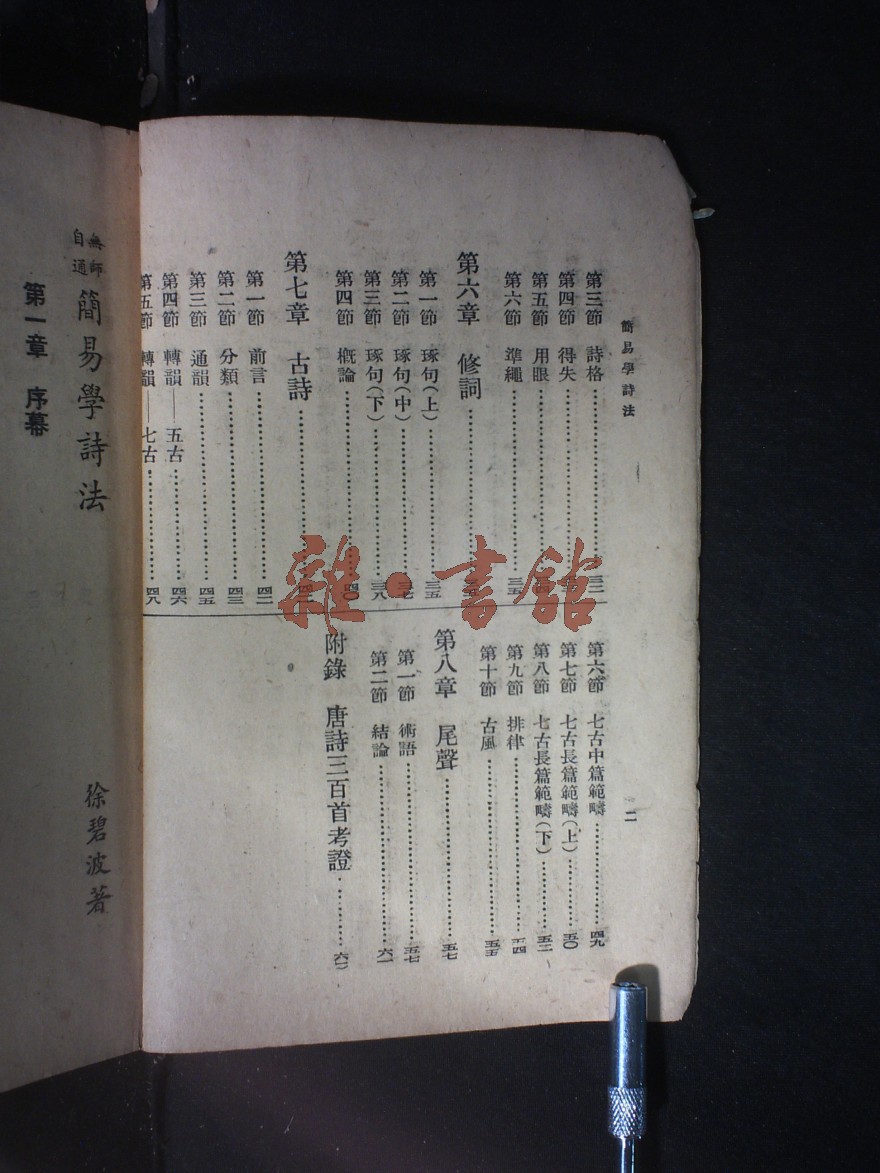 簡易學詩法
二
第三節 詩格 三二
第四節 得失
第五節 用眼
第六節 準繩 三五
第六章 修詞
第一節 琢句(上) 三五
第二節 琢句(中) 三七
第三節 琢句(下) 三八
第四節 概論 四〇
第七章 古詩
第一節 前言 四二
第二節 分類 四三
第三節 通韻 四五
第四節 轉韻——五古 四六
第五節 轉韻——七古 四八
第六節 七古中篇範疇 四九
第七節 七古長篇範疇(上) 五〇
第八節 七古長篇範疇(下) 五二
第九節 排律 五四
第十節 古風 五五
第八章 尾聲 五七
第一節 術語 五七
第二節 結論 六一
附錄 唐詩三百首考證
無師自通 簡易學詩法
徐碧波著
第一章 序幕
雜·書館